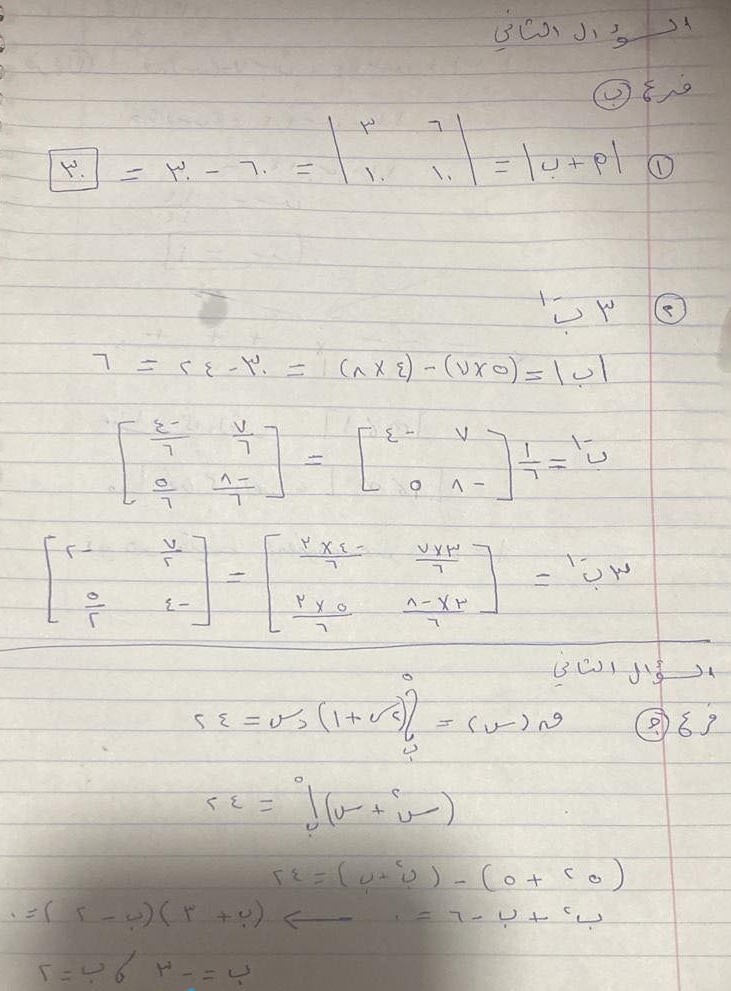 السؤال الثاني
فرع (ب)
(١) |م + ب| = |٦ ٣ ; ١٠ ١٠| = ٦٠ - ٣٠ = ٣٠
(٢) ٣ب⁻¹
|ب| = (٥×٧) - (٤×٨) = ٣٠ - ٢٤ = ٦
ب⁻¹ = ١/٦ [٧ -٤ ; -٨ ٥] = [٧/٦ -٤/٦ ; -٨/٦ ٥/٦]
٣ب⁻¹ = [٣×٧/٦ -٤×٣/٦ ; ٣×-٨/٦ ٥×٣/٦] = [٧/٢ -٢ ; -٤ ٥/٢]
السؤال الثاني
فرع (ج)
ق(س) = ∫ب^٥ (٢س+١) دس = ٢٤
(س² + س)|ب^٥ = ٢٤
(٢٥ + ٥) - (ب² + ب) = ٢٤
ب² + ب - ٦ = ٠ ← (ب + ٣)(ب - ٢) = ٠
ب = -٣ ، ب = ٢